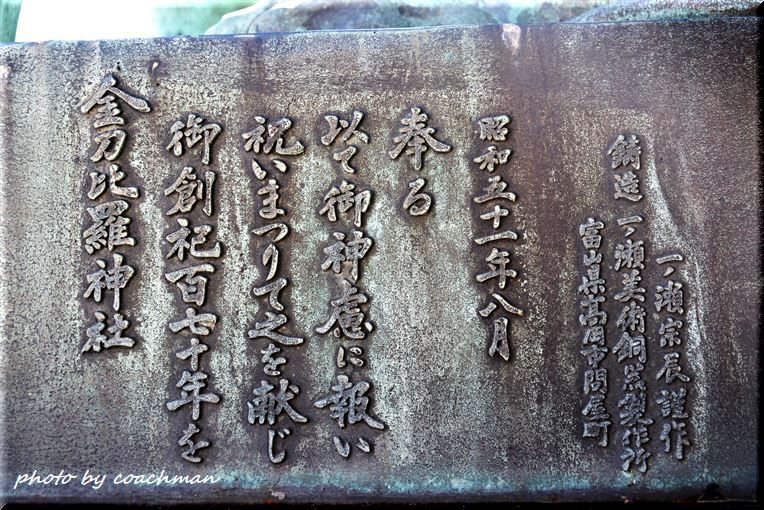 金刀比羅神社
御創祀百七十年を
祝いまつりて之を献じ
以て御神慮に報い
奉る
昭和五十一年八月
富山県高岡市問屋町
鋳造 一ノ瀬美術銅器製作所
一ノ瀬宗辰謹作
photo by coachman